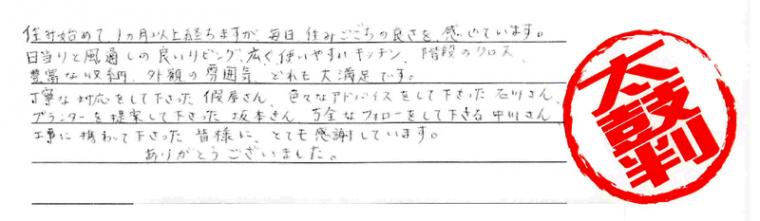 住み始めて、1カ月以上経ちますが、毎日 住みごごちの良さを 感じています。
日当りと風通しの良いリビング、広く使いやすいキッチン、階段のクロス、
豊富な収納、外観の雰囲気、どれも大満足です。
丁寧な対応をして下さった 假屋さん、色々なアドバイスをして下さった 石川さん、
プランターを提案して下さった 坂本さん、万全なフォローをして下さる 中川さん、
工事に携わって下さった 皆様に、とても感謝しています。
ありがとうございました。
太鼓判